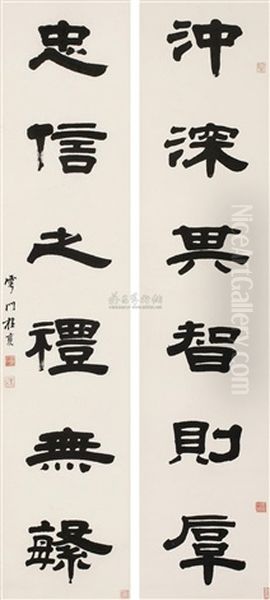 沖深其智則厚
忠信之禮無繁
NiceArtGallery.com